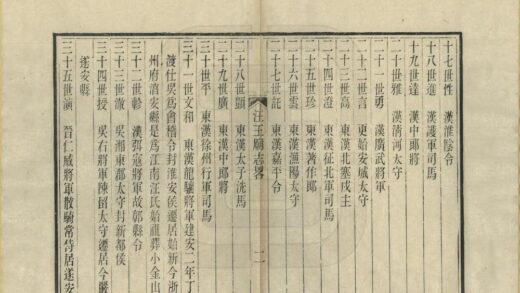 十七世性 漢淮陰令
十八世進 漢護軍司馬
十九世達 漢中郎將
二十世雅 漢清河太守
二十一世勇 漢廣武將軍
二十二世言 更始安城太守
二十三世高 東漢北塞戍主
二十四世澄 東漢征北軍司馬
二十五世珍 東漢著作郎
二十六世雲 東漢漁陽太守
二十七世託 東漢嘉平令
汪王廟志畧
二
二十八世顗 東漢太子洗馬
二十九世廣 東漢中郎將
三十世平 東漢徐州行軍司馬
三十一世文和 東漢龍驤將軍建安二年丁
渡仕吳爲會稽令封淮安侯遷居始新今浙
州府淳安縣是爲江南汪氏始祖葬小金山
三十二世 漢彈寇將軍故鄣縣令
三十三世澈 吳湘東郡太守封新都侯
三十四世授 吳右將軍陳留太守遷居今嚴
遂安縣
三十五世演 晉仁威將軍散騎常侍居遂安